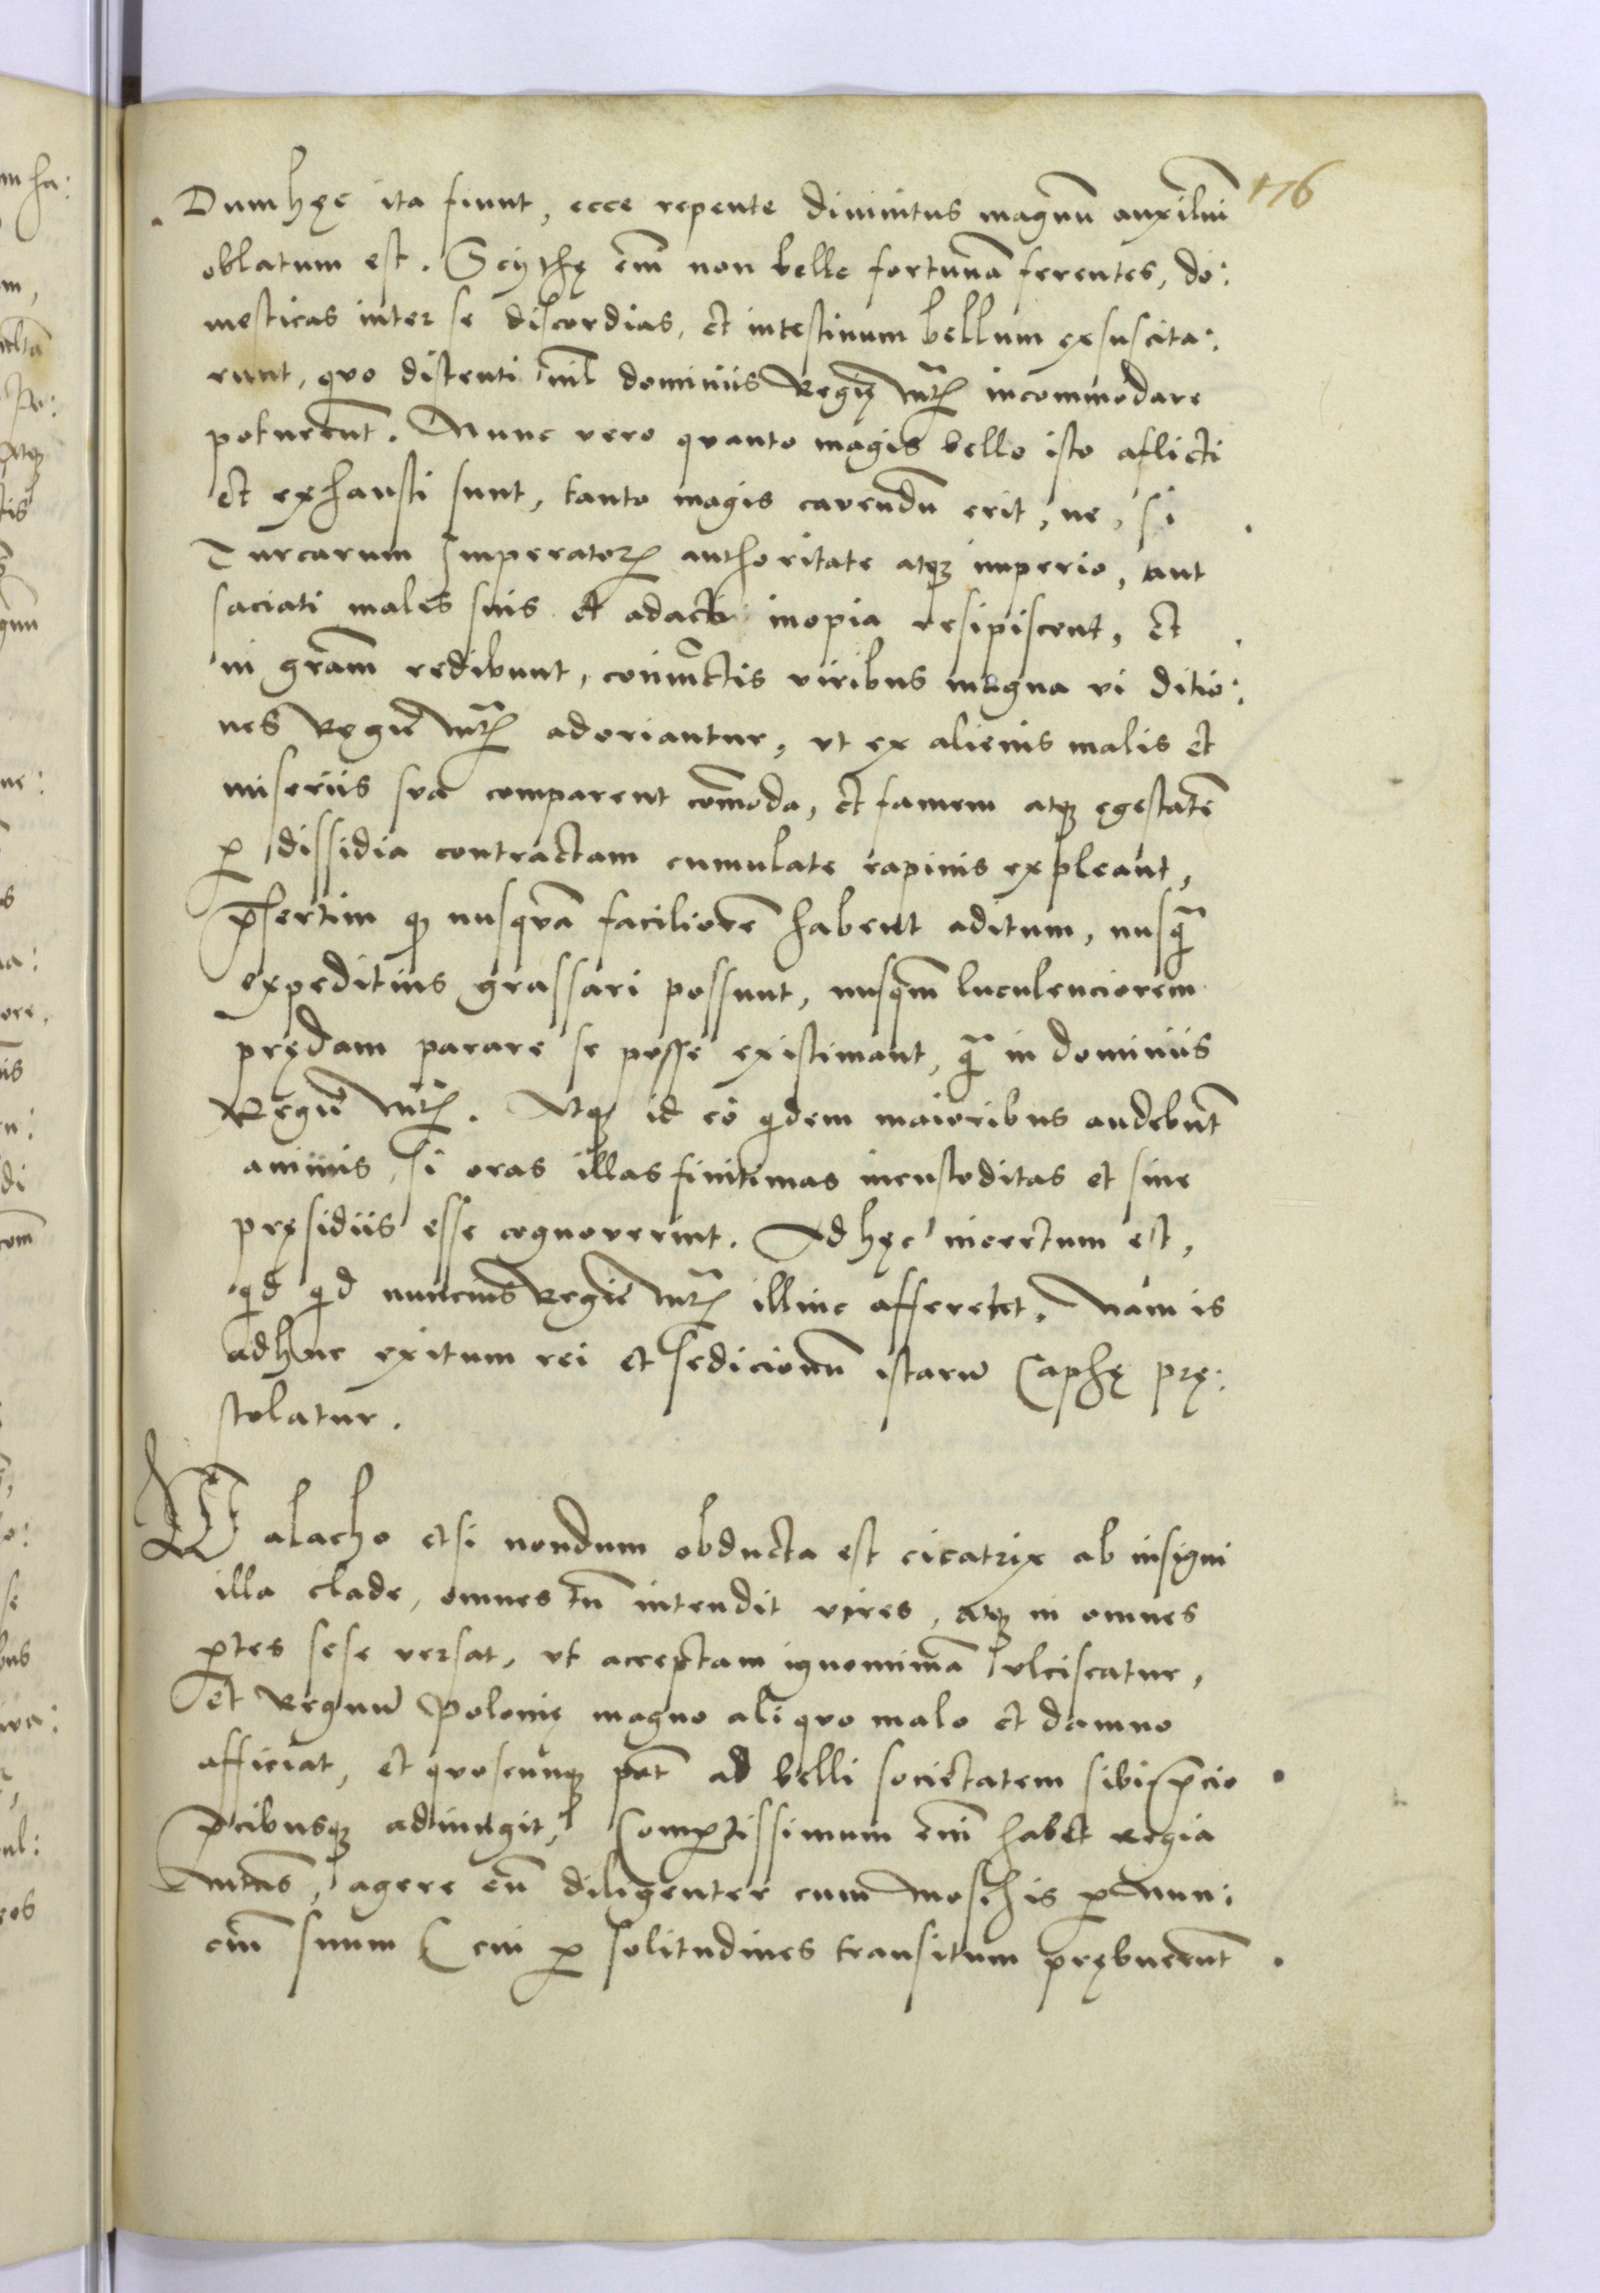 176
Dum hęc ita fiunt, ecce repente divinitus magnū auxiliū
oblatum est. Scythę em̃ non belle fortunā ferentes, do:
mesticas inter se discordias, et intestinum bellum exsuscita:
runt, quo distenti nil dominiis Regię mt̃is incommodare
potuerūt. Nunc vero quanto magis bello isto aflicti
et exhausti sunt, tanto magis cavendū erit, ne, si
Turcarum Imperatoris authoritate atq3 imperio, aut
saciati malis suis et adacti inopia resipiscent, et
in grãm redibunt, coniūctis viribus magna vi ditio:
nes Regię mt̃is adoriantur, ut ex alienis malis et
miseriis sua comparent cõmoda, et famem atq3 ęgestatē
p dissidia contractam cumulate rapinis expleant,
p̃sertim q3 nusquā faciliorē habent aditum, nusq̃
expeditius grassari possunt, nusqm̃ luculenciorem
prędam parare se posse existimant, q̃ in dominiis
Regię mt̃is. Atq3 id eo q̇dem maioribus audebūt
animis, si oras illas finitimas incustoditas et sine
pręsidiis esse cognoverint. Ad hęc incertum est,
q̇d q̇d nuncius Regię mt̃is illinc afferetet. Nam is
adhuc exitum rei et sedicionū istarū Caphę prę:
stolatur.
Walacho etsi nondum obducta est cicatrix ab insigni
illa clade, omnes tñ intendit vires, atq3 in omnes
ptes sese versat, ut acceptam ignominiā ulciscatur,
et Regnū Polonię magno aliquo malo et damno
afficiat, et quoscunq3 pot̃ ad belli societatem sibi p̃cio
p̃cibusq3 adiungit, Comptissimum em̃ habet Regia
mtas̃, agere eū diligenter cum Moschis p Nun:
ciū suum (cui p solitudines transitum prębuerūt